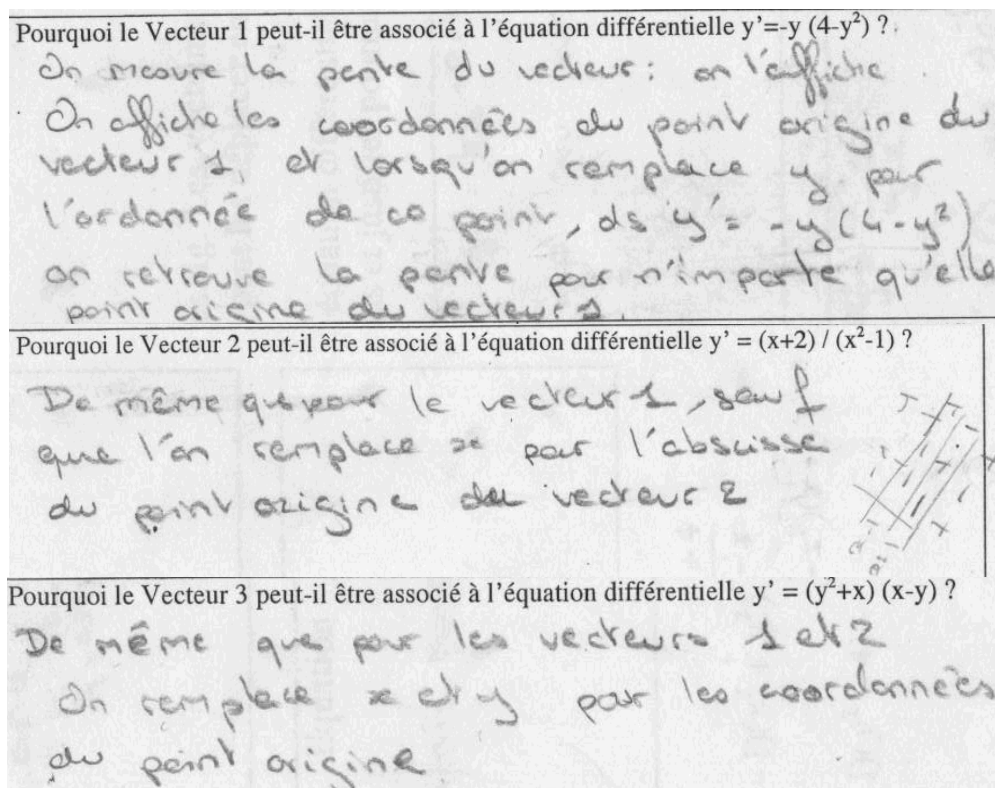 Pourquoi le Vecteur 1 peut-il être associé à l'équation différentielle y'=-y (4-y²) ?
On mesure la pente du vecteur : on l'affiche
On affiche les coordonnées du point origine du
vecteur 1, et lorsqu'on remplace y par
l'ordonnée de ce point, ds y' = -y(4-y²)
on retrouve la pente pour n'importe qu'elle
point origine du vecteur 1.
Pourquoi le Vecteur 2 peut-il être associé à l'équation différentielle y' = (x+2) / (x²-1) ?
De même que pour le vecteur 1, sauf
que l'on remplace x par l'abscisse
du point origine du vecteur 2
Pourquoi le Vecteur 3 peut-il être associé à l'équation différentielle y' = (y²+x) (x-y) ?
De même que pour les vecteurs 1 et 2
On remplace x et y par les coordonnées
du point origine